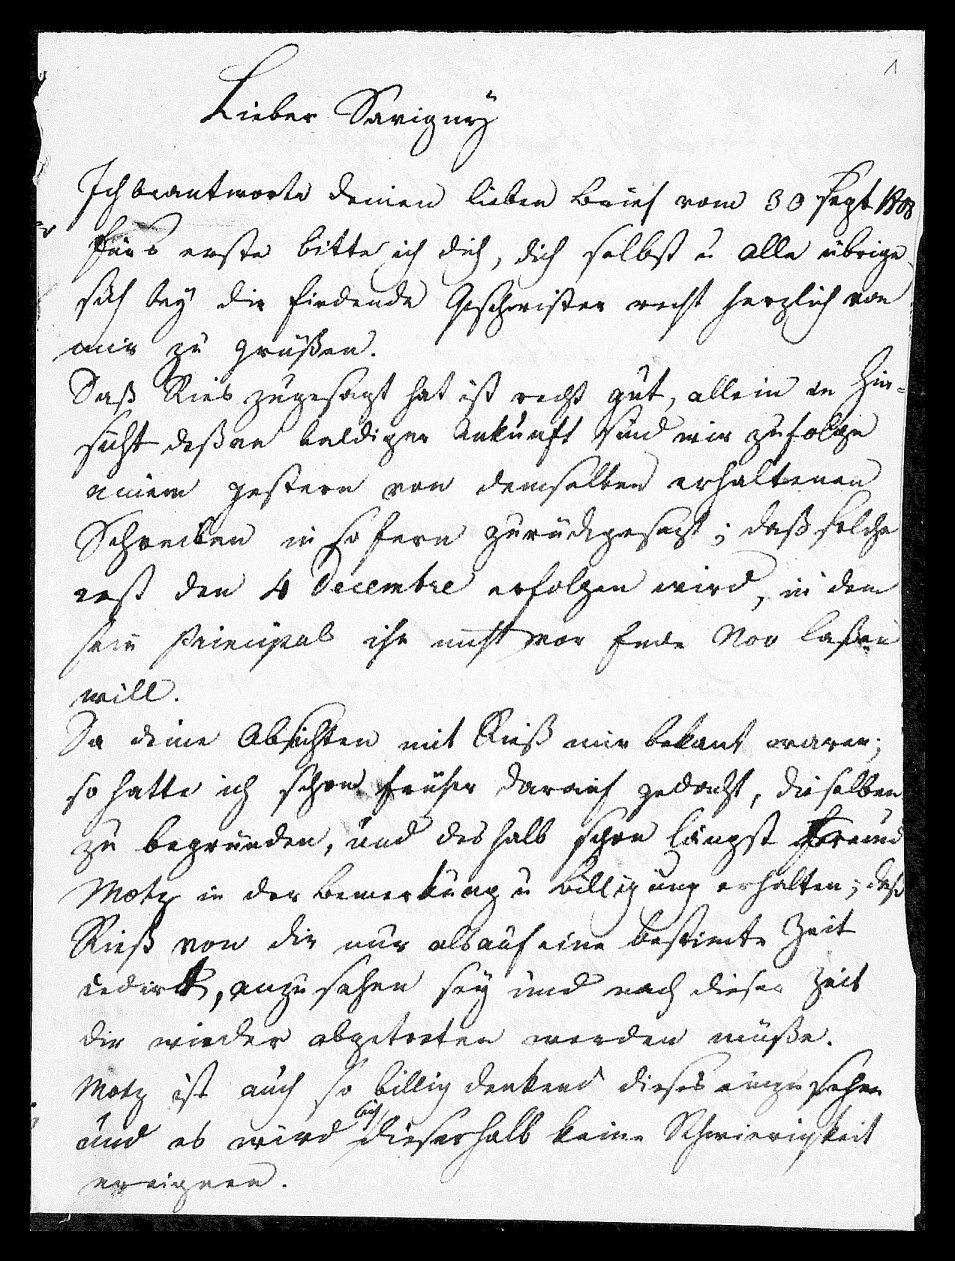 1
Lieber Savigny
Ich beantworte deinen lieben Brief vom 30 Sept 1808
fürs erste bitte ich dich, dich selbst u alle übrige
sich bey dir findende Geschwister recht herzlich von
mir zu grüßen.
Daß Ries zugesagt hat ist recht gut, allein in Hin-
sicht deßen baldiger Ankunft sind wir zufolge
einem gestern von demselben erhaltenen
Schreiben in so fern zurückgesetzt; daß solche
erst den 4 Decembre erfolgen wird, in dem
sein Principal ihn nicht vor Ende Nov laßen
will.
Da deine Absichten mit Rieß mir bekant waren;
so hatte ich schon früher darauf gedacht, dieselben
zu begründen, und deshalb schon längst Freund
Motz in der Bemerkung u Billigung erhalten; daß
Rieß von dir nur als auf eine bestimte Zeit
cedirt, anzusehen sey und nach dieser Zeit
dir wieder abgetreten werden müße.
Motz ist auch so billig denkend dieses einzusehen
und es wird sich dieserhalb keine Schwierigkeit
ereignen.